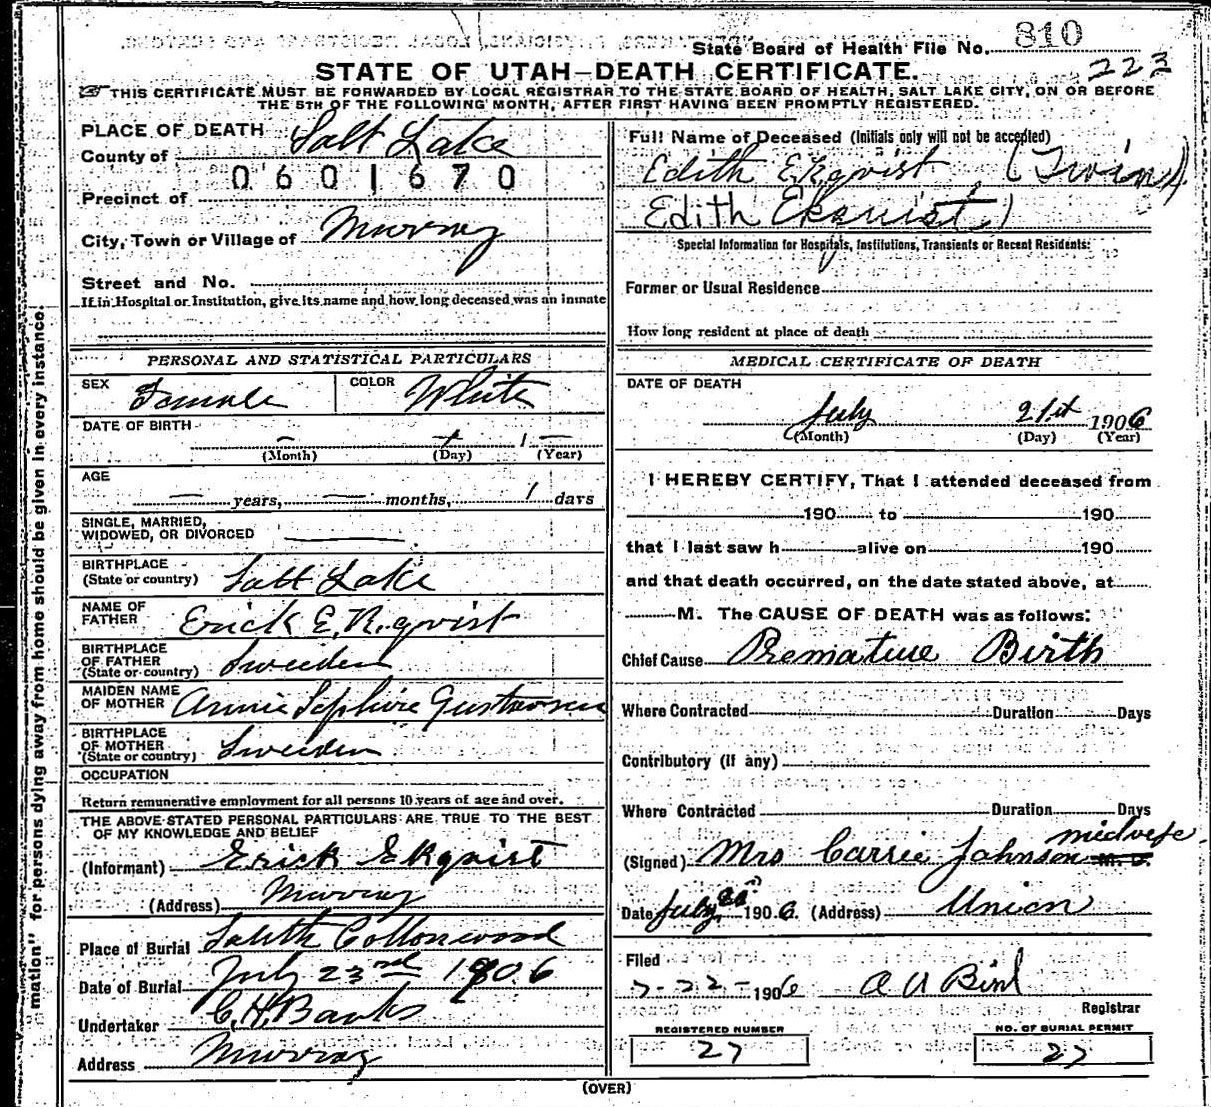 State Board of Health File No. 810
223
STATE OF UTAH—DEATH CERTIFICATE.
THIS CERTIFICATE MUST BE FORWARDED BY LOCAL REGISTRAR TO THE STATE BOARD OF HEALTH, SALT LAKE CITY, ON OR BEFORE
THE 5TH OF THE FOLLOWING MONTH, AFTER FIRST HAVING BEEN PROMPTLY REGISTERED.
PLACE OF DEATH
County of Salt Lake
0601670
Precinct of
City, Town or Village of Murray
Street and No.
If in Hospital or Institution, give its name and how long deceased was an inmate
PERSONAL AND STATISTICAL PARTICULARS
SEX Female COLOR White
DATE OF BIRTH
(Month) (Day) (Year)
AGE
— years, — months, 1 days
SINGLE, MARRIED,
WIDOWED, OR DIVORCED
BIRTHPLACE
(State or country) Salt Lake
NAME OF
FATHER Erick Ekqvist
BIRTHPLACE
OF FATHER
(State or country) Sweeden
MAIDEN NAME
OF MOTHER Annie Gustavson
BIRTHPLACE
OF MOTHER
(State or country) Sweeden
OCCUPATION
Return remunerative employment for all persons 10 years of age and over.
THE ABOVE STATED PERSONAL PARTICULARS ARE TRUE TO THE BEST
OF MY KNOWLEDGE AND BELIEF
(Informant) Erick Ekqvist
(Address) Murray
Place of Burial South Cottonwood
Date of Burial July 23rd 1906
Undertaker C. H. Banks
Address Murray
Full Name of Deceased (Initials only will not be accepted)
Edith Ekqvist (Twin)
Edith Ekqvist)
Special Information for Hospitals, Institutions, Transients or Recent Residents:
Former or Usual Residence
How long resident at place of death
MEDICAL CERTIFICATE OF DEATH
DATE OF DEATH
July 21st 1906
(Month) (Day) (Year)
I HEREBY CERTIFY, That I attended deceased from
190 to 190
that I last saw h alive on 190
and that death occurred, on the date stated above, at
M. The CAUSE OF DEATH was as follows:
Chief Cause Premature Birth
Where Contracted Duration Days
Contributory (If any)
Where Contracted Duration Days
midwife
(Signed) Mrs Carrie Johnson M. D.
Date July 1906 (Address) Union
Filed
7-22-1906
Registrar
REGISTERED NUMBER
27
NO. OF BURIAL PERMIT
27
(OVER)
mation" for persons dying away from home should be given in every instance.